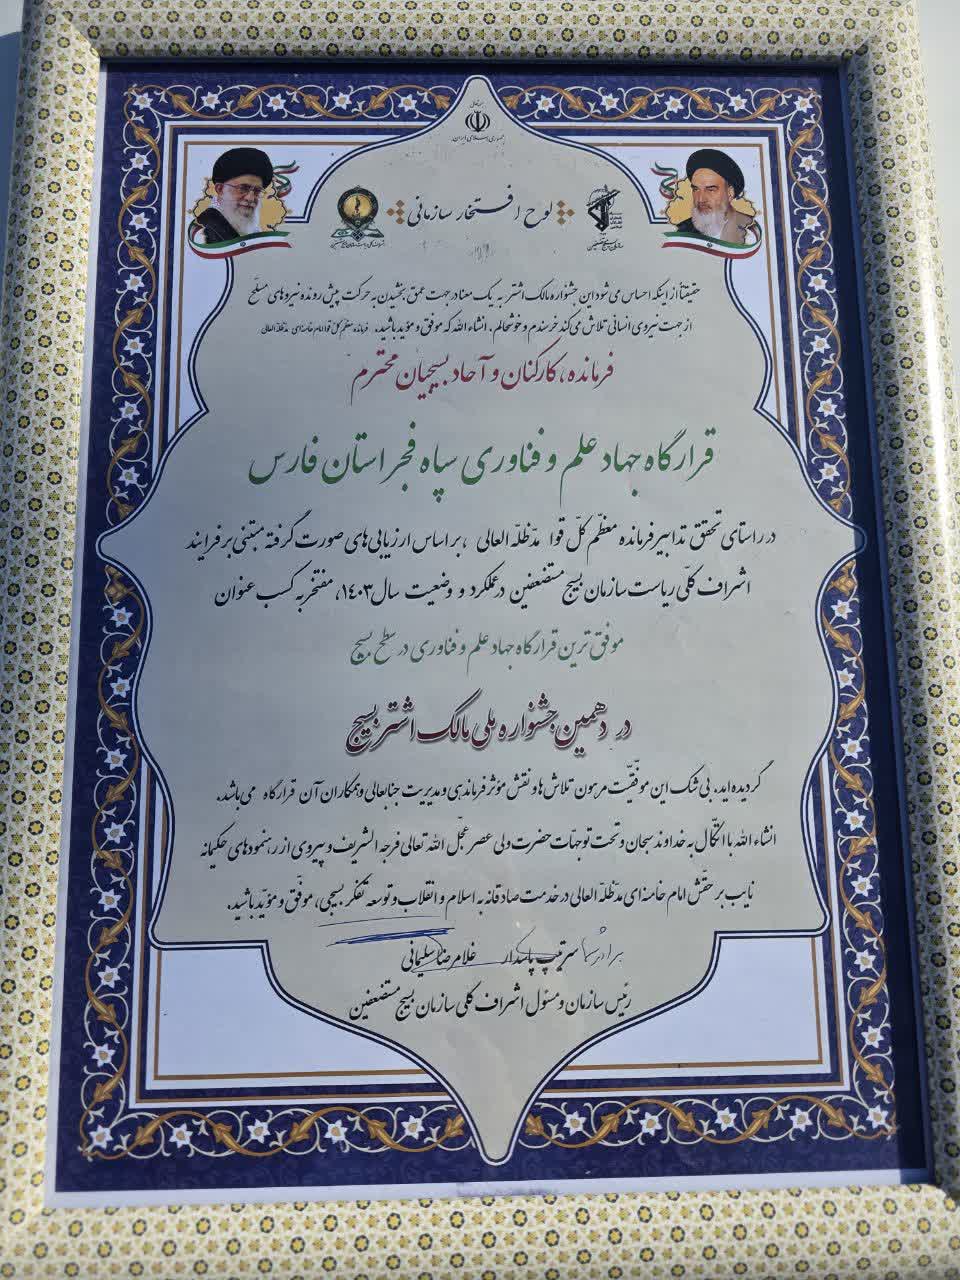 جمهوری اسلامی ایران
لوح افتخار سازمانی
حقیقتاً از اینکه احساس می‌شود این جشنواره مالک اشتر به یک معنا در جهت عمق بخشیدن به حرکت پیش رونده نیروهای مسلح
از جهت نیروی انسانی تلاش می‌کند خرسندم و خوشحالم. انشاء الله که موفق و مؤید باشید. فرمانده معظم کل قوا امام خامنه‌ای مدظله العالی
فرمانده، کارکنان و آحاد بسیجیان محترم
قرارگاه جهاد علم و فناوری سپاه فجر استان فارس
در راستای تحقق تدابیر فرمانده معظّم کلّ قوا مدّظلّه العالی ، بر اساس ارزیابی‌های صورت گرفته مبتنی بر فرایند
اشراف کلّی ریاست سازمان بسیج مستضعفین در عملکرد و وضعیت سال ۱۴۰۳، مفتخر به کسب عنوان
موفق ترین قرارگاه جهاد علم و فناوری در سطح بسیج
در دهمین جشنواره ملی مالک اشتر بسیج
گردیده‌اید. بی شک این موفقیّت مرهون تلاش‌ها و نقش مؤثر فرماندهی و مدیریت جنابعالی و همکاران آن قرارگاه می‌باشد.
انشاء الله با اتّکال به خداوند سبحان و تحت توجهات حضرت ولی عصر عجّل الله تعالی فرجه الشریف و پیروی از رهنمودهای حکیمانه
نایب بر حقّش امام خامنه‌ای مدّظلّه العالی در خدمت صادقانه به اسلام و انقلاب و توسعه تفکر بسیجی، موفّق و مؤیّد باشید.
برادر شما سرتیپ پاسدار غلامرضا سلیمانی
رئیس سازمان و مسئول اشراف کلی سازمان بسیج مستضعفین